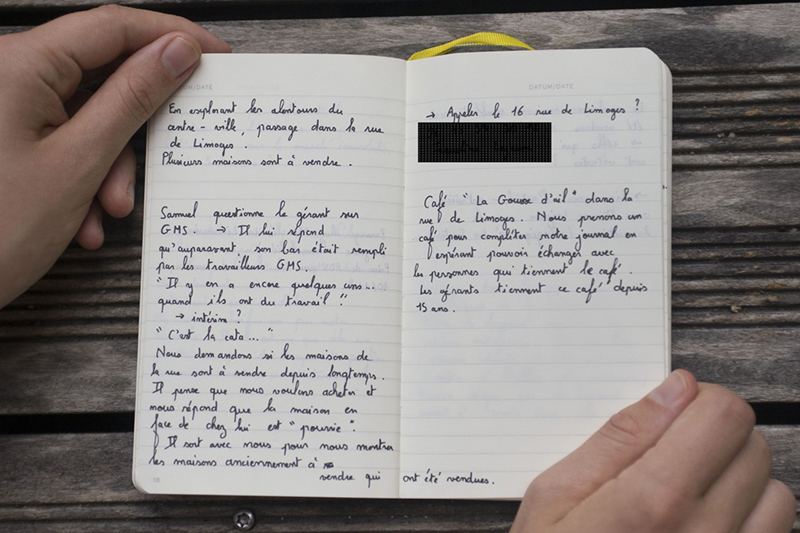 DATUM/DATE
En explorant les alentours du
centre-ville, passage dans la rue
de Limoges.
Plusieurs maisons sont à vendre.
Samuel questionne le gérant sur
GMS. → Il lui répond
qu'auparavant son bar était rempli
par les travailleurs GMS.
"Il y en a encore quelques uns...
quand ils ont du travail !"
→ intérim ?
"C'est la cata..."
Nous demandons si les maisons de
la rue sont à vendre depuis longtemps.
Il pense que nous voulons acheter et
nous répond que la maison en
face de chez lui est "pourrie".
Il sort avec nous pour nous montrer
les maisons anciennement à
vendre qui ont été vendues.
DATUM/DATE
→ Appeler le 16 rue de Limoges ?
Café "La Gousse d'ail" dans la
rue de Limoges. Nous prenons un
café pour compléter notre journal en
espérant pouvoir échanger avec
les personnes qui tiennent le café.
Les gérants tiennent ce café depuis
15 ans.